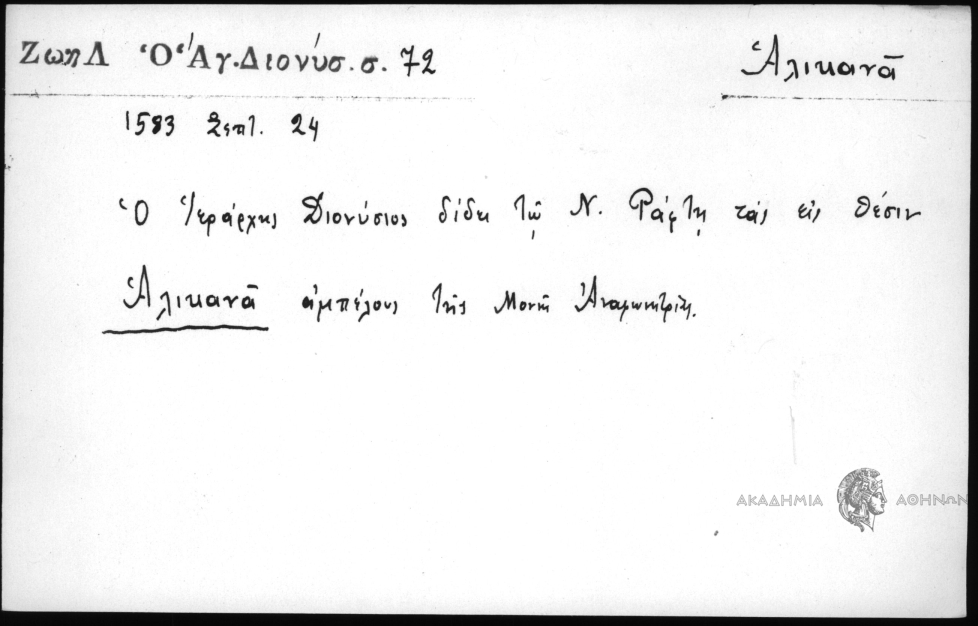 Ζωη Λ Ὁ Ἅγ. Διονύσ. σ. 72
Ἁλικανᾶ
1583 Σεπτ. 24
Ὁ Ἱεράρχης Διονύσιος δίδει τῷ Ν. Ράφτῃ τὰς εἰς θέσιν
Ἁλικανᾶ ἀμπέλους τῆς Μονῆς
ΑΚΑΔΗΜΙΑ ΑΘΗΝΩΝ